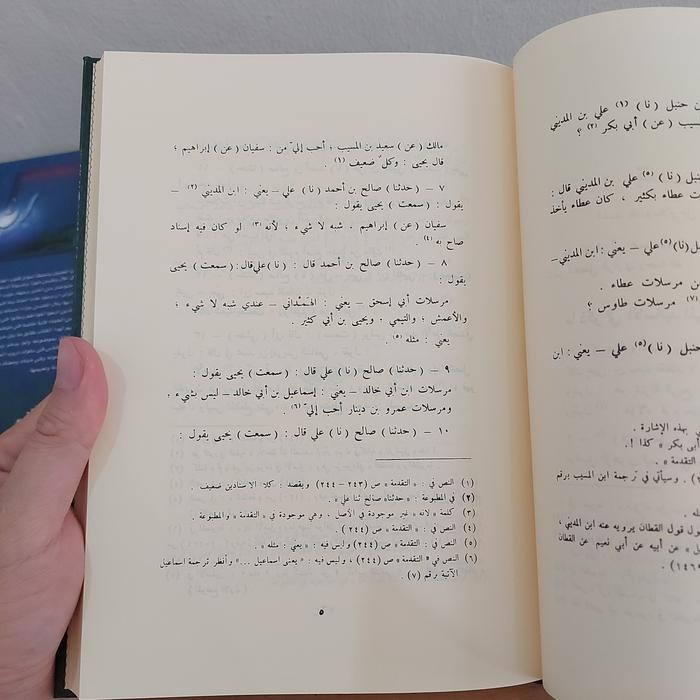 مالك ( عن ) سعيد بن المسيب ؛ أحب إليّ من : سفيان ( عن ) إبراهيم ؛
قال يحيى : وكلّ ضعيف (١)
٧ – ( حدثنا ) صالح بن أحمد ( نا ) علي – يعني : ابن المديني (٢) –
يقول : ( سمعت ) يحيى يقول :
سفيان ( عن ) إبراهيم ، شبه لا شيء ؛ لأنه (٣) لو كان فيه إسناد
صاح به (٤) .
٨ – ( حدثنا ) صالح بن أحمد قال : ( نا ) علي قال : ( سمعت ) يحيى
يقول :
مرسلات أبي إسحق – يعني : الهمْداني – عندي شبه لا شيء ؛
والأعمش ؛ والتيمي ، ويحيى بن أبي كثير .
يعني : مثله (٥) .
٩ – ( حدثنا ) صالح ( نا ) علي قال : ( سمعت ) يحيى يقول :
مرسلات ابن أبي خالد – يعني : إسماعيل بن أبي خالد – ليس بشيء ،
ومرسلات عمرو بن دينار أحب إليّ (٦) .
١٠ – ( حدثنا ) صالح ( نا ) علي قال : ( سمعت ) يحيى يقول :
(١) النص في : « التقدمة » ص (٢٤٣–٢٤٤) ويقصد : كلا الاسنادين ضعيف .
(٢) في المطبوعة : « حدثنا صالح ثنا علي » .
(٣) كلمة « لانه » غير موجودة في الأصل ، وهي موجودة في « التقدمة » والمطبوعة .
(٤) النص في : « التقدمة » ص (٢٤٤) .
(٥) النص في : « التقدمة » ص (٢٤٤) وليس فيه : « يعني : مثله » .
(٦) النص في « التقدمة » ص (٢٤٤) ، وليس فيه : « يعنى اسماعيل ... » وأنظر ترجمة اسماعيل
الآتية برقم (٧) .
٥
ن حنبل ( نا ) (١) علي بن المديني
سيب ( عن ) أبي بكر (٢) ؟
( نا ) (٥) علي بن المديني قال :
عطاء بكثير ، كان عطاء يأخذ
( نا ) (٥) علي – يعني : ابن المديني –
من مرسلات عطاء .
(٧) مرسلات طاوس ؟
حنبل ( نا ) (٥) علي – يعني : ابن
بهذه الإشارة .
أبى بكر » كذا !.
التقدمة » .
. وسيأتي في ترجمة ابن المسيب برقم
قول القطان يرويه عنه ابن المديني ،
» عن أبيه عن أبي نعيم عن القطان